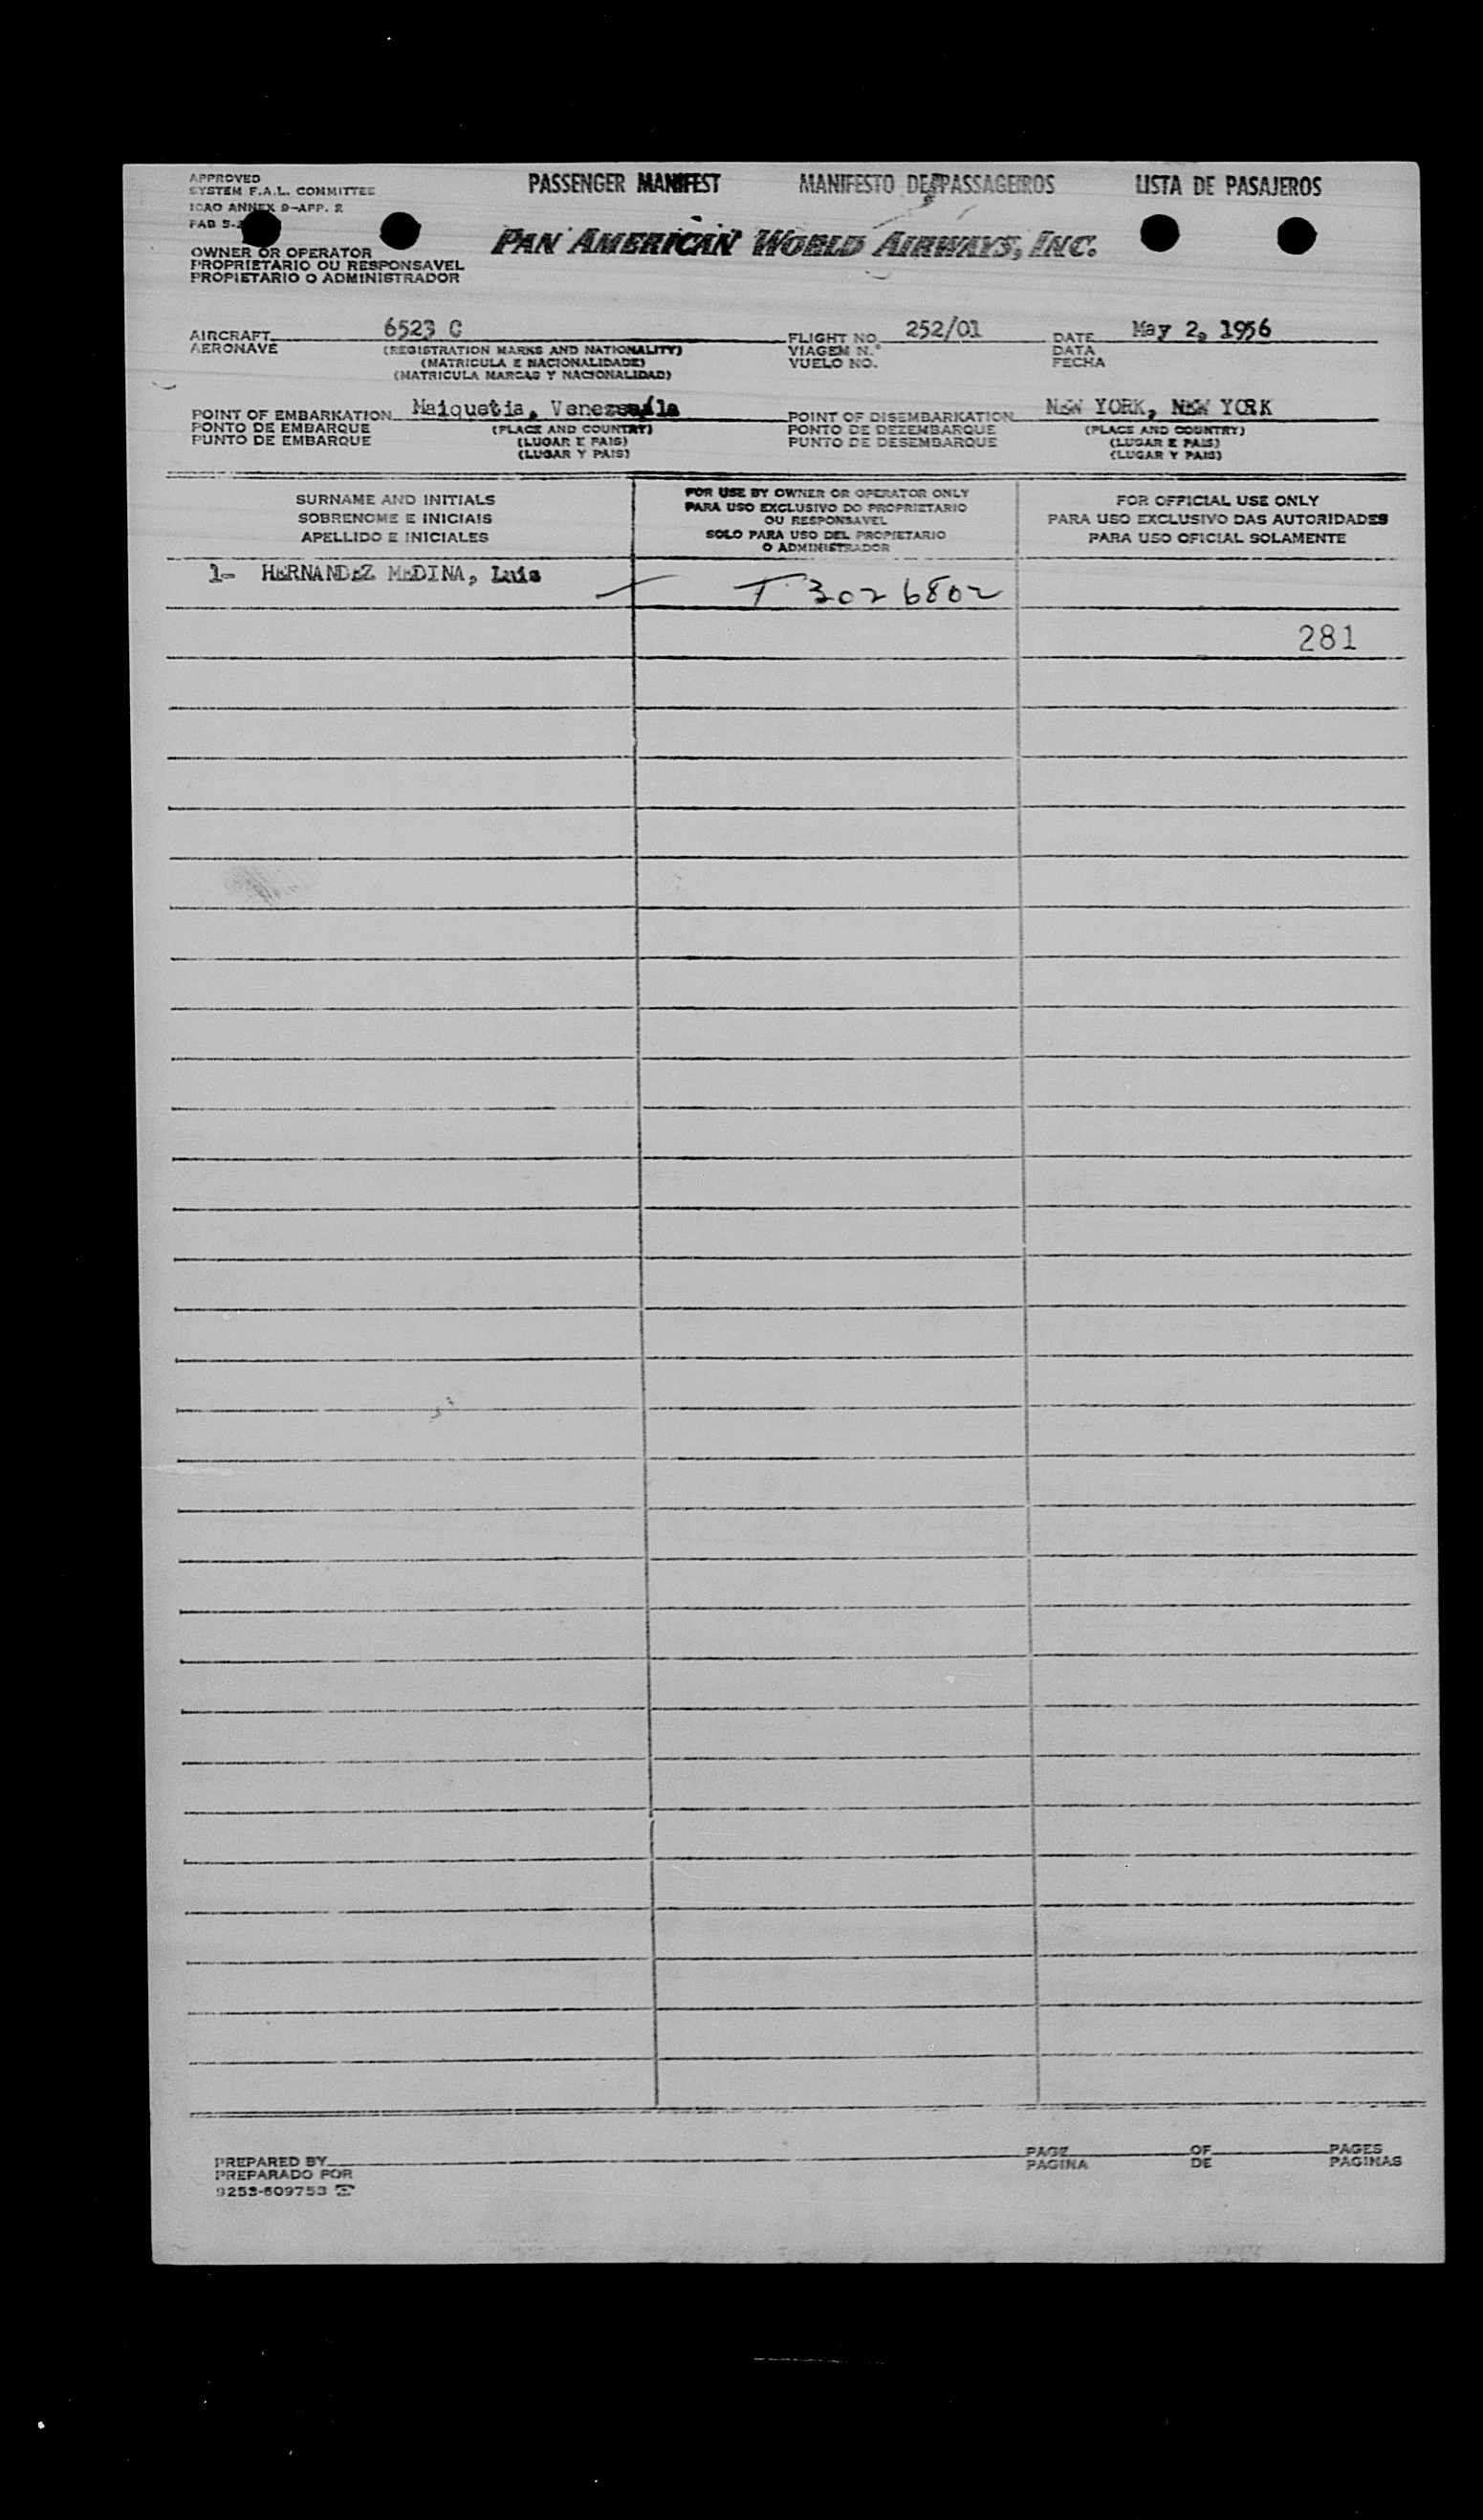 APPROVED
SYSTEM F.A.L. COMMITTEE
ICAO ANNEX 9-APP. 2
PASSENGER MANIFEST MANIFESTO DE PASSAGEIROS LISTA DE PASAJEROS
FAB S-
PAN AMERICAN WORLD AIRWAYS, INC.
OWNER OR OPERATOR
PROPRIETARIO OU RESPONSAVEL
PROPIETARIO O ADMINISTRADOR
AIRCRAFT 6523 C FLIGHT NO. 252/01 DATE May 2, 1956
AERONAVE (REGISTRATION MARKS AND NATIONALITY) VIAGEM N.º DATA
(MATRICULA E NACIONALIDADE) VUELO NO. FECHA
(MATRICULA MARCAS Y NACIONALIDAD)
POINT OF EMBARKATION Maiquetia, Venezuela POINT OF DISEMBARKATION NEW YORK, NEW YORK
PONTO DE EMBARQUE (PLACE AND COUNTRY) PONTO DE DEZEMBARQUE (PLACE AND COUNTRY)
PUNTO DE EMBARQUE (LUGAR E PAIS) PUNTO DE DESEMBARQUE (LUGAR E PAIS)
(LUGAR Y PAIS) (LUGAR Y PAIS)
SURNAME AND INITIALS
SOBRENOME E INICIAIS
APELLIDO E INICIALES
FOR USE BY OWNER OR OPERATOR ONLY
PARA USO EXCLUSIVO DO PROPRIETARIO
OU RESPONSAVEL
SOLO PARA USO DEL PROPIETARIO
O ADMINISTRADOR
FOR OFFICIAL USE ONLY
PARA USO EXCLUSIVO DAS AUTORIDADES
PARA USO OFICIAL SOLAMENTE
1- HERNANDEZ MEDINA, Luis T 3026802
281
PREPARED BY PAGE OF PAGES
PREPARADO POR PAGINA DE PAGINAS
9253-609753